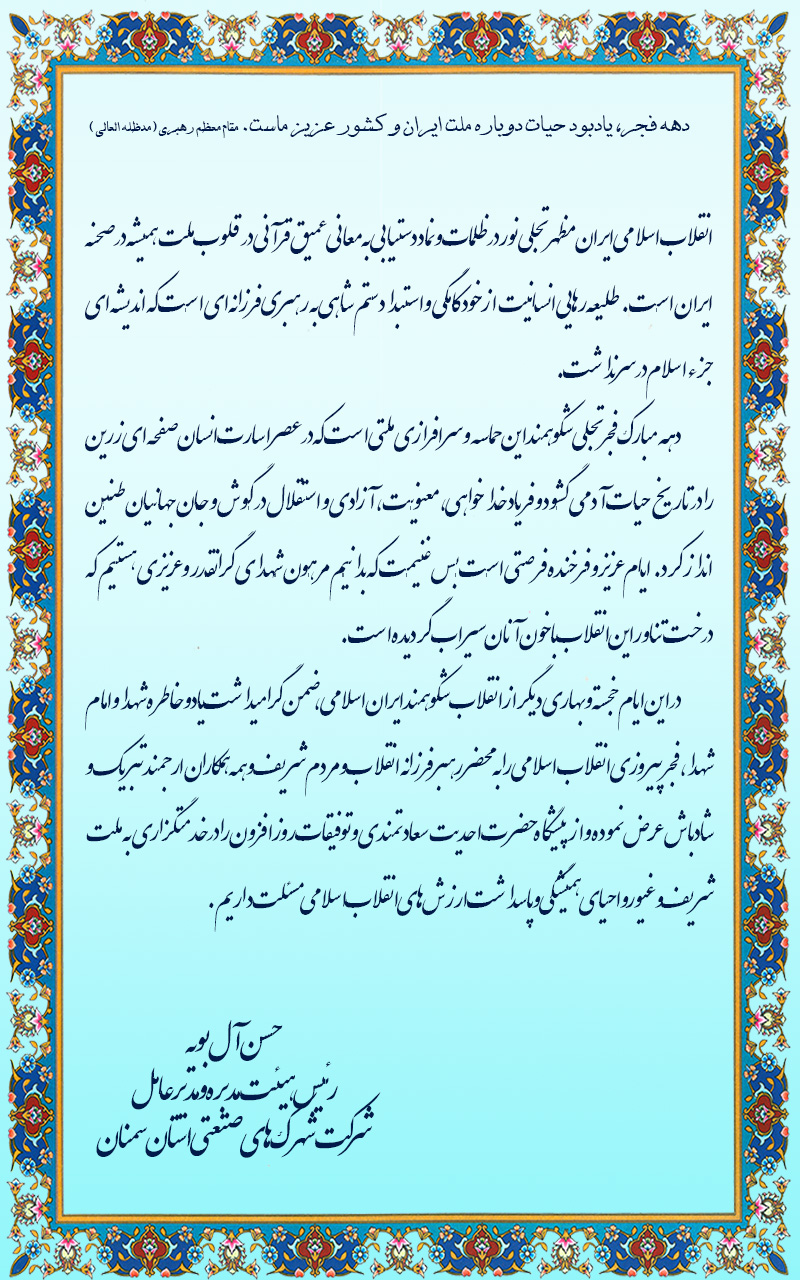 دهه فجر، یادبود حیات دوباره ملت ایران و کشور عزیز ماست. مقام معظم رهبری (مدظله العالی)
انقلاب اسلامی ایران مظهر تجلی نور در ظلمات و نماد دستیابی به معانی عمیق قرآنی در قلوب ملت همیشه در صحنه
ایران است. طلیعه رهایی انسانیت از خودکامگی و استبداد ستم شاهی به رهبری فرزانه ای است که اندیشه ای
جزء اسلام در سر نداشت.
دهه مبارک فجر تجلی شکوهمند این حماسه و سرافرازی ملتی است که در عصر اسارت انسان صفحه ای زرین
را در تاریخ حیات آدمی گشود و فریاد خدا خواهی، معنویت، آزادی و استقلال در گوش و جان جهانیان طنین
انداز کرد. ایام عزیز و فرخنده فرصتی است بس غنیمت که بدانیم مرهون شهدای گرانقدر و عزیزی هستیم که
درخت تناور این انقلاب با خون آنان سیراب گردیده است.
در این ایام خجسته و بهاری دیگر از انقلاب شکوهمند ایران اسلامی، ضمن گرامیداشت یاد و خاطره شهدا و امام
شهدا، فجر پیروزی انقلاب اسلامی را به محضر رهبر فرزانه انقلاب و مردم شریف و همه همکاران ارجمند تبریک و
شادباش عرض نموده و از پیشگاه حضرت احدیت سعادتمندی و توفیقات روز افزون را در خدمتگزاری به ملت
شریف و غیور و احیای همیشگی و پاسداشت ارزش های انقلاب اسلامی مسئلت داریم.
حسن آل بویه
رئیس هیئت مدیره و مدیرعامل
شرکت شهرک های صنعتی استان سمنان